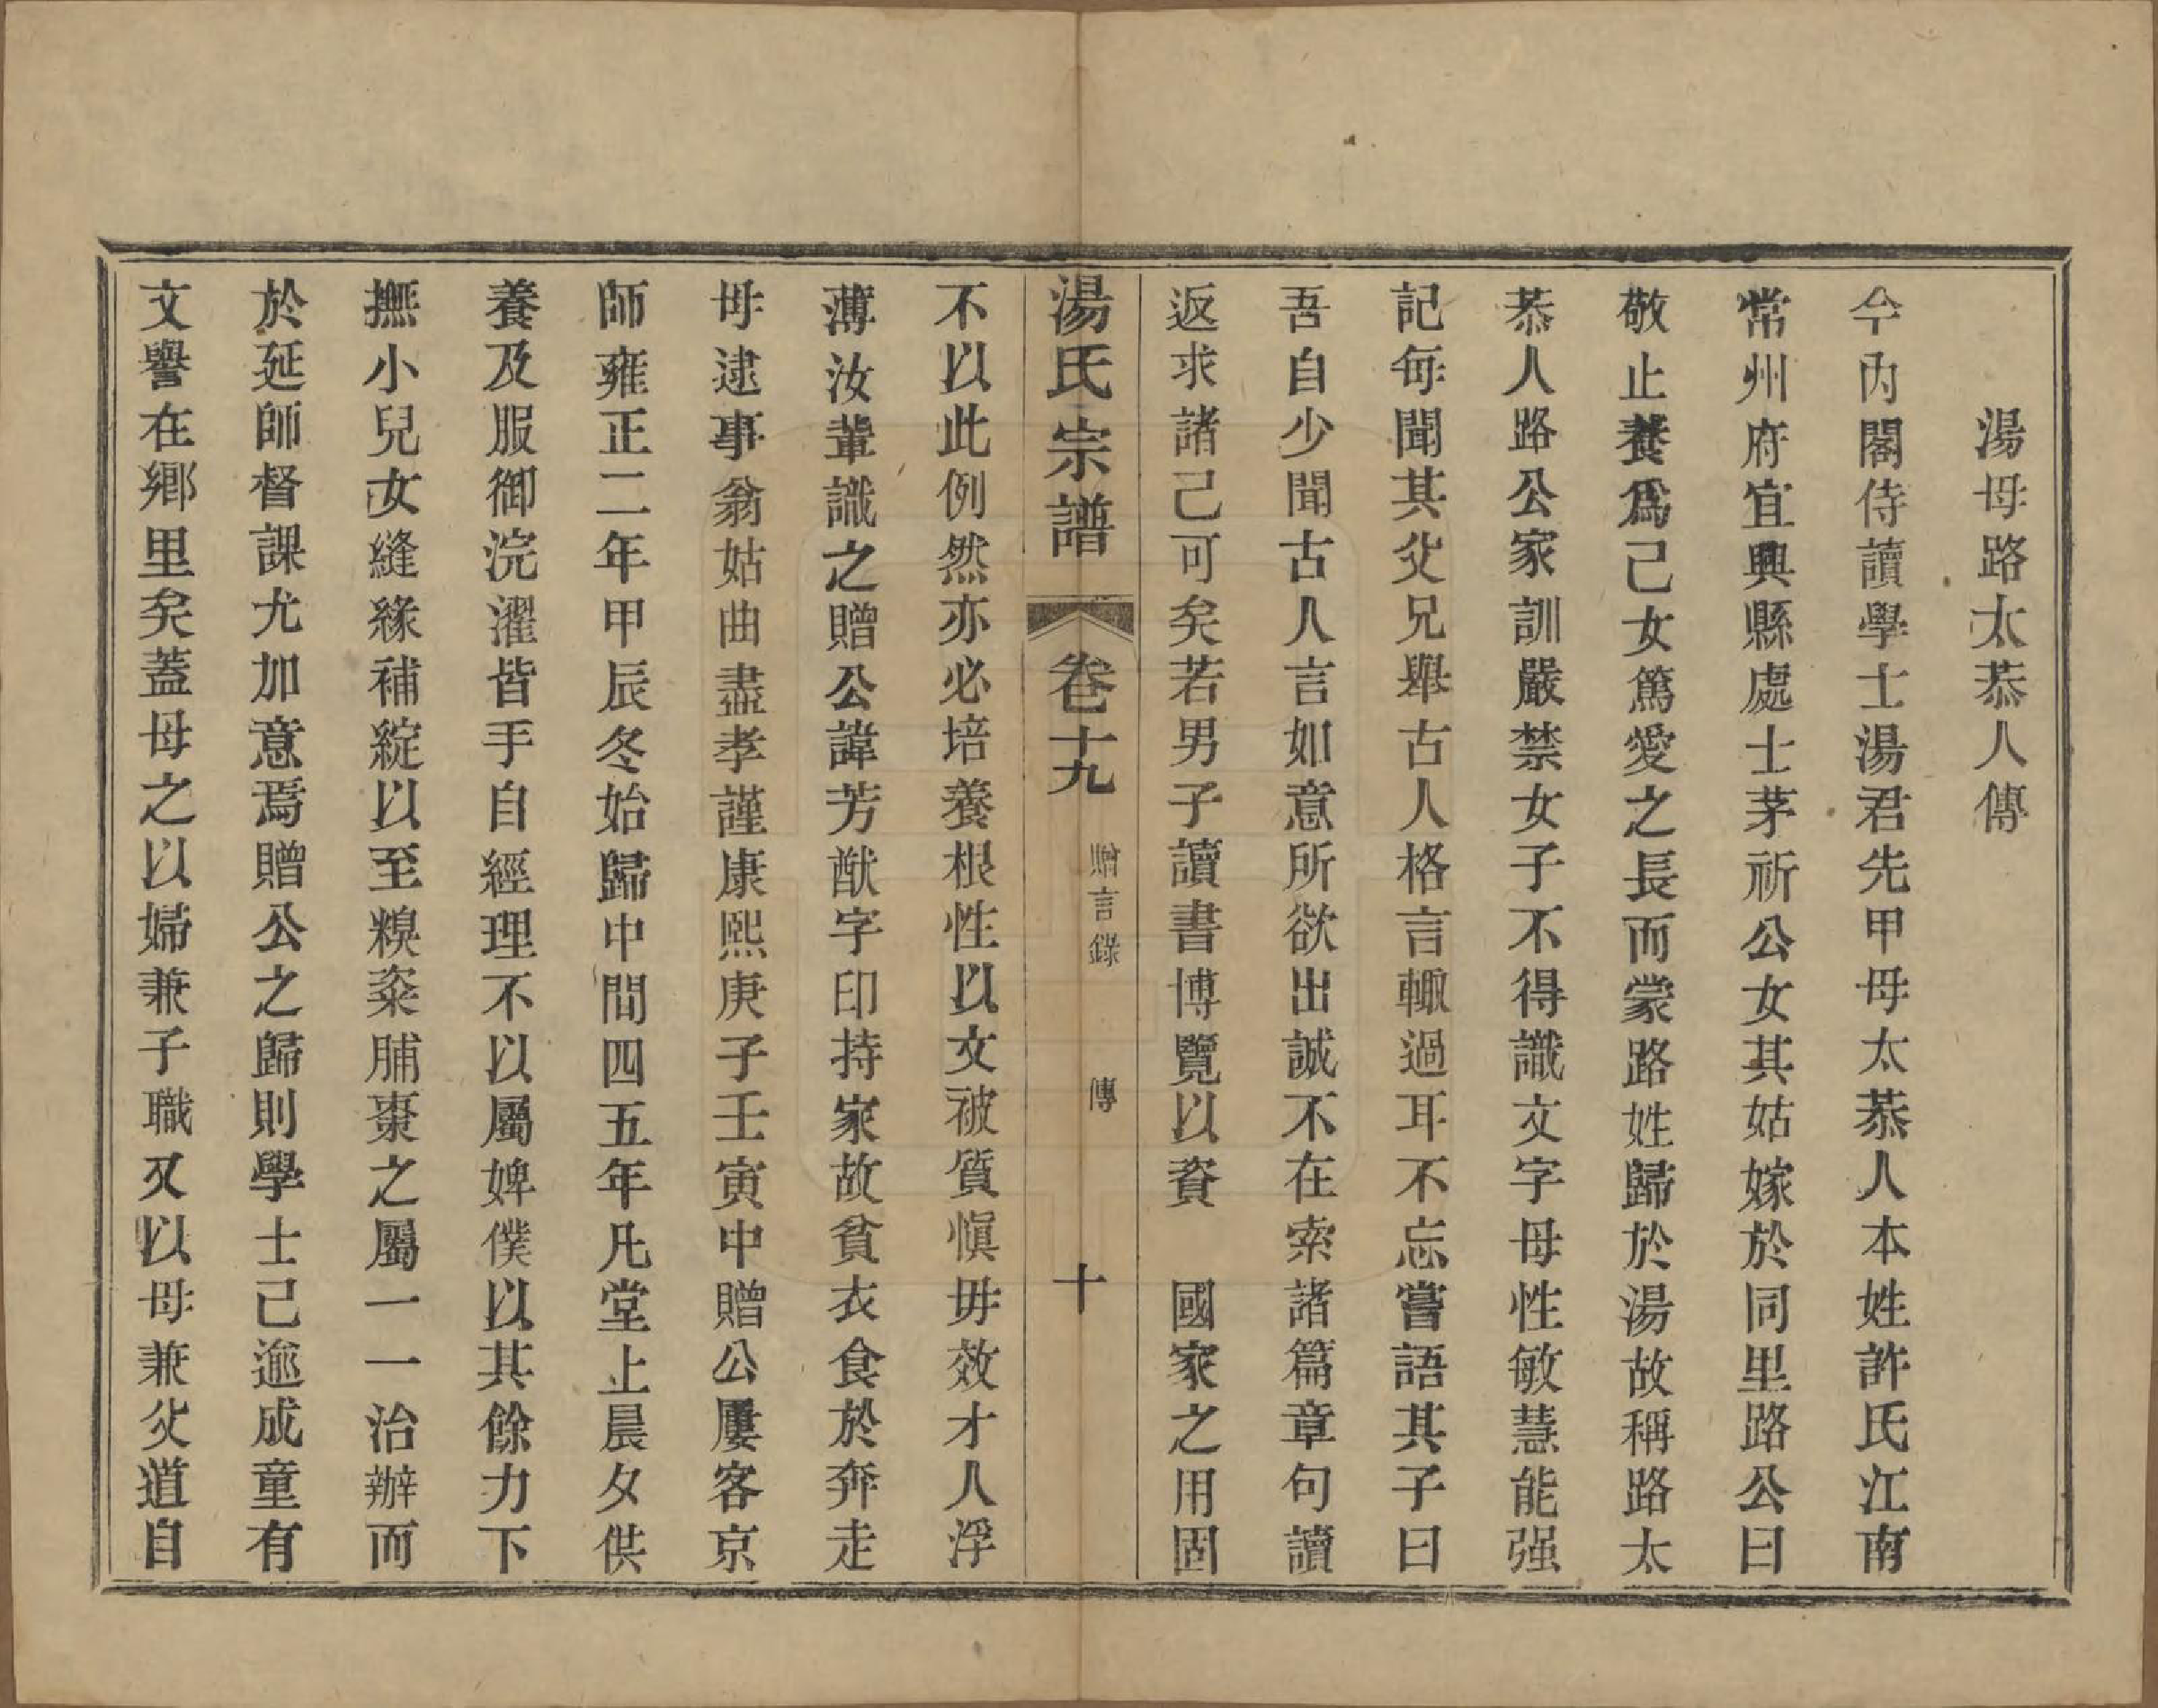 湯母路太恭人傳
今內閣侍讀學士湯君先甲母太恭人本姓許氏江南
常州府宜興縣處士茅祈公女其姑嫁於同里路公曰
敬止養爲己女篤愛之長而蒙路姓歸於湯故稱路太
恭人路公家訓嚴禁女子不得識文字母性敏慧能强
記每聞其父兄舉古人格言輙過耳不忘嘗語其子曰
吾自少聞古人言如意所欲出誠不在索諸篇章句讀
返求諸己可矣若男子讀書博覽以資　國家之用固
湯氏宗譜　卷十九　贈言錄　傳　十
不以此例然亦必培養根性以文被質愼毋效才人浮
薄汝輩識之贈公諱芳猷字印持家故貧衣食於奔走
母逮事翁姑曲盡孝謹康熙庚子壬寅中贈公屢客京
師雍正二年甲辰冬始歸中間四五年凡堂上晨夕供
養及服御浣濯皆手自經理不以屬婢僕以其餘力下
撫小兒女縫緣補綻以至糗粢脯棗之屬一一治辦而
於延師督課尤加意焉贈公之歸則學士己逾成童有
文譽在鄉里矣蓋母之以婦兼子職又以母兼父道自